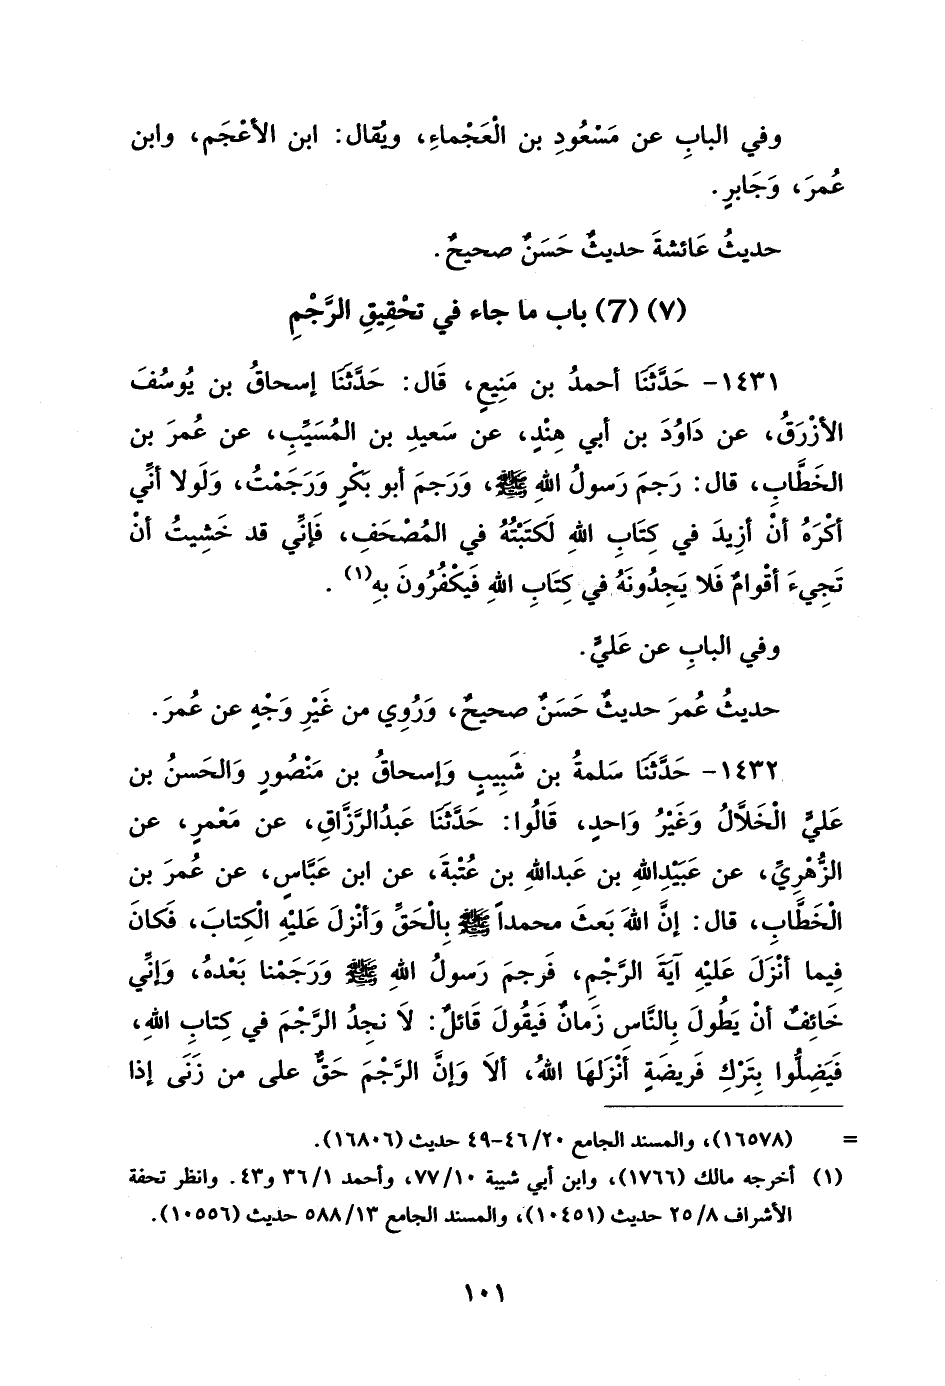 وفي البابِ عن مَسْعُودِ بن الْعَجْماءِ، ويُقال: ابن الأعْجَم، وابن
عُمرَ، وَجَابرٍ.
حديثُ عَائشةَ حديثٌ حَسَنٌ صحيحٌ.
(٧) (7) باب ما جاء في تحْقِيقِ الرَّجْمِ
١٤٣١- حَدَّثَنَا أحمدُ بن مَنِيعٍ، قَال: حَدَّثَنَا إسحاقُ بن يُوسُفَ
الأزْرَقُ، عن دَاوُدَ بن أبي هِنْدٍ، عن سَعيدِ بن المُسَيَّبِ، عن عُمرَ بن
الخَطَّابِ، قال: رَجمَ رَسولُ اللهِ ﷺ، وَرَجمَ أبو بَكْرٍ وَرَجَمْتُ، وَلَولا أنِّي
أكْرَهُ أنْ أزِيدَ في كِتَابِ اللهِ لَكَتَبْتُهُ في المُصْحَفِ، فَإنِّي قد خَشِيتُ أنْ
تَجِيءَ أقْوامٌ فَلا يَجِدُونَهُ في كِتَابِ اللهِ فَيَكْفُرُونَ بِهِ(١) .
وفي البابِ عن عَليٍّ.
حديثُ عُمرَ حديثٌ حَسَنٌ صحيحٌ، وَرُوِي من غَيْرِ وَجْهٍ عن عُمرَ.
١٤٣٢- حَدَّثَنَا سَلمةُ بن شَبِيبٍ وَإسحاقُ بن مَنْصُورٍ وَالحَسنُ بن
عَليٍّ الْخَلَّالُ وَغَيْرُ وَاحدٍ، قَالُوا: حَدَّثَنَا عَبدُالرَّزَّاقِ، عن مَعْمرٍ، عن
الزُّهْرِيِّ، عن عَبَيْدِاللهِ بن عَبداللهِ بن عُتْبةَ، عن ابن عَبَّاسٍ، عن عُمرَ بن
الْخَطَّابِ، قال: إنَّ اللهَ بَعثَ محمداً ﷺ بِالْحَقِّ وَأنْزلَ عَليْهِ الْكِتابَ، فَكانَ
فِيما أنْزَلَ عَليْهِ آيَةَ الرَّجْمِ، فَرجمَ رَسولُ اللهِ ﷺ وَرَجَمْنا بَعْدهُ، وَإنِّي
خَائِفٌ أنْ يَطُولَ بِالنَّاسِ زَمانٌ فَيقُولَ قَائلٌ: لاَ نجدُ الرَّجْمَ في كِتابِ اللهِ،
فَيَضِلُّوا بِتَرْكِ فَريضَةٍ أنْزَلَها اللهُ، ألاَ وَإنَّ الرَّجْمَ حَقٌّ على من زَنَى إذا
= (١٦٥٧٨)، والمسند الجامع ٢٠/ ٤٦-٤٩ حديث (١٦٨٠٦).
(١) أخرجه مالك (١٧٦٦)، وابن أبي شيبة ١٠/ ٧٧، وأحمد ١/ ٣٦ و٤٣. وانظر تحفة
الأشراف ٨/ ٢٥ حديث (١٠٤٥١)، والمسند الجامع ١٣/ ٥٨٨ حديث (١٠٥٥٦).
١٠١